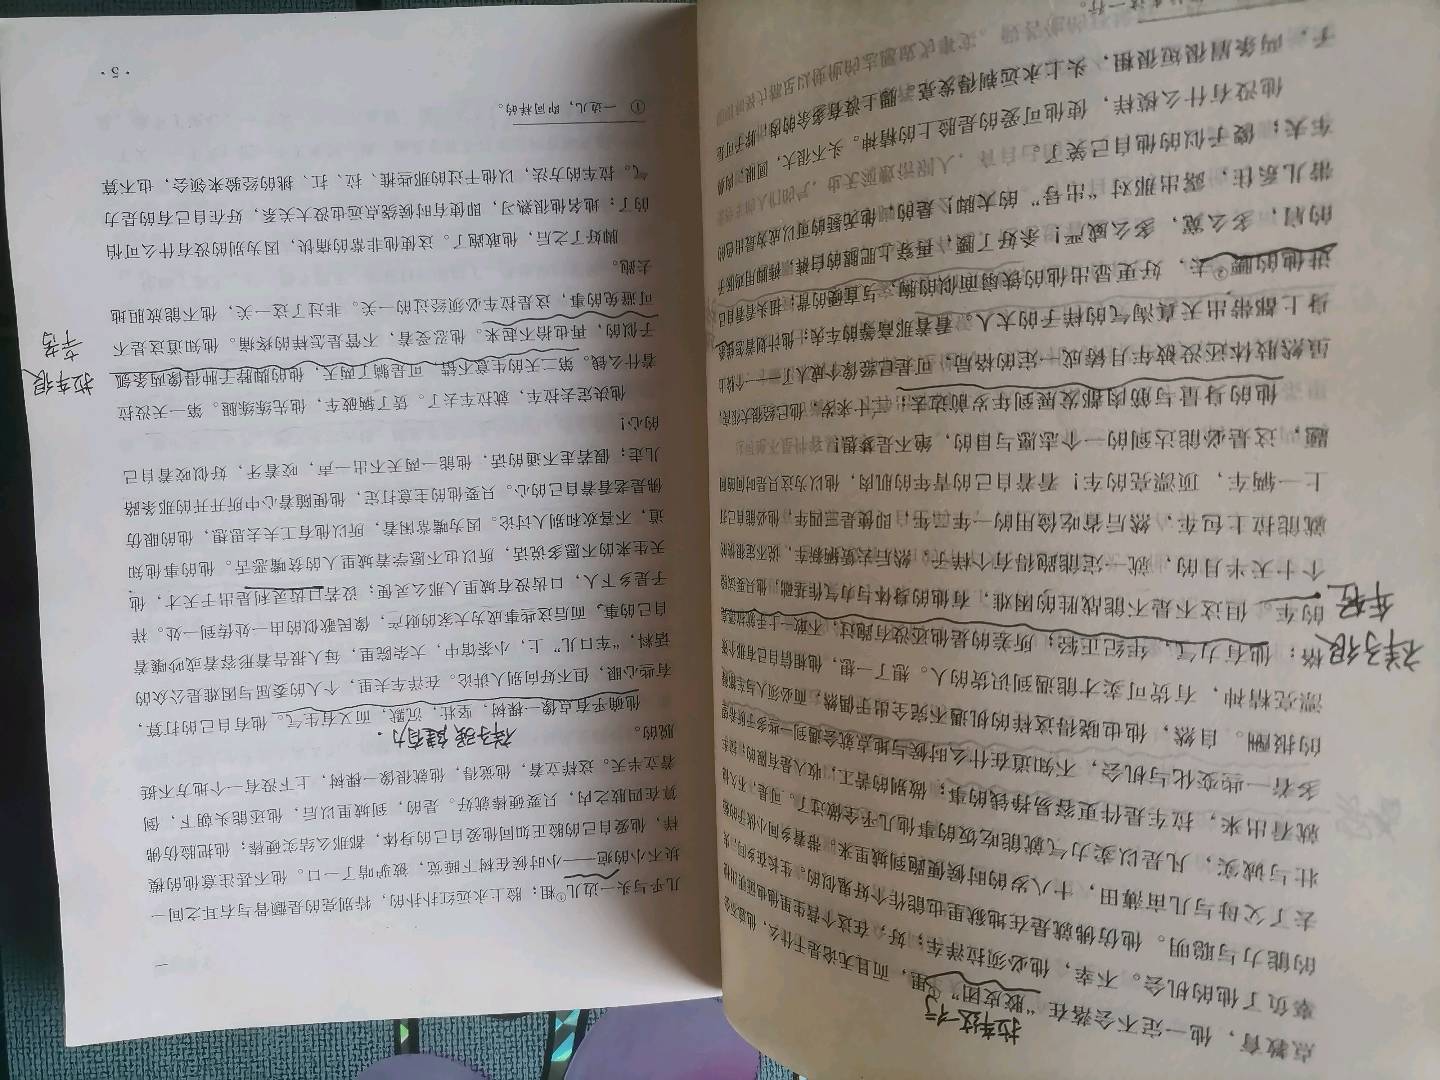 点教育，他一定不会落在“胶皮团①”里，而且无论是干什么，他总不会
辜负了他的机会。不幸，他必须拉洋车；好，在这个营生里他也证明出他
的能力与聪明。他仿佛就是在地狱里也能作个好鬼似的。生长在乡间，失
去了父母与几亩薄田，十八岁的时候便跑到城里来。带着乡间小伙子的足
壮与诚实，凡是以卖力气就能吃饭的事他几乎全做过了。可是，不久他
就看出来，拉车是件更容易挣钱的事；做别的苦工，收入是有限的；拉车
多着一些变化与机会，不知道在什么时候与地点就会遇到一些多于所希望
的报酬。自然，他也晓得这样的机遇不完全出于偶然，而必须人与车都得
漂亮精神，有货可卖才能遇到识货的人。想了一想，他相信自己有那个资
格：他有力气，年纪正轻；所差的是他还没有跑过，不敢一上手就拉漂亮
的车。但这不是不能战胜的困难，有他的身体与力气作基础，他只要试验
个十天半月的，就一定能跑得有个样子，然后去赁辆新车，说不定很快的
就能拉上包车，然后省吃俭用的一年二年，即使是三四年，他必能自己打
上一辆车，顶漂亮的车！看着自己的青年的肌肉，他以为这只是时间的问
题，这是必能达到的一个志愿与目的，绝不是梦想！
他的身量与筋肉都发展到年岁前边去；二十来岁，他已经很大很高，
虽然肢体还没被年月铸成一定的格局，可是已经像个成人了——一个脸上
身上都带出天真淘气的样子的大人。看着那高等的车夫，他计划着怎样杀
进他的腰②去，好更显出他的铁扇面似的胸，与直硬的背；扭头看看自己
的肩，多么宽，多么威严！杀好了腰，再穿上肥腿的白裤，裤脚用鸡肠子
带儿系住，露出那对“出号”的大脚！是的，他无疑的可以成为最出色的
车夫；傻子似的他自己笑了。
他没有什么模样，使他可爱的是脸上的精神。头不很大，圆眼，肉鼻
子，两条眉很短很粗，头上永远剃得发亮。腮上没有多余的肉，脖子可是
这一行。
拉车这一行
祥子很
年轻
几乎与头一边儿①粗；脸上永远红扑扑的，特别亮的是颧骨与右耳之间一
块不小的疤——小时候在树下睡觉，被驴啃了一口。他不甚注意他的模
样，他爱自己的脸正如同他爱自己的身体，都那么结实硬棒；他把脸仿佛
算在四肢之内，只要硬棒就好。是的，到城里以后，他还能头朝下，倒
着立半天。这样立着，他觉得，他就很像一棵树，上下没有一个地方不挺
脱的。
祥子强健有力。
他确乎有点像一棵树，坚壮，沉默，而又有生气。他有自己的打算，
有些心眼，但不好向别人讲论。在洋车夫里，个人的委屈与困难是公众的
话料，“车口儿”上，小茶馆中，大杂院里，每人报告着形容着或吵嚷着
自己的事，而后这些事成为大家的财产，像民歌似的由一处传到一处。祥
子是乡下人，口齿没有城里人那么灵便；设若口齿灵利是出于天才，他
天生来的不愿多说话，所以也不愿学着城里人的贫嘴恶舌。他的事他知
道，不喜欢和别人讨论。因为嘴常闲着，所以他有工夫去思想，他的眼仿
佛是老看着自己的心。只要他的主意打定，他便随着心中所开开的那条路
儿走；假若走不通的话，他能一两天不出一声，咬着牙，好似咬着自己
的心！
他决定去拉车，就拉车去了。赁了辆破车，他先练练腿。第一天没拉
着什么钱。第二天的生意不错，可是躺了两天，他的脚脖子肿得像两条瓠
子似的，再也抬不起来。他忍受着，不管是怎样的疼痛。他知道这是不
可避免的事，这是拉车必须经过的一关。非过了这一关，他不能放胆地
去跑。
拉车很
辛苦
脚好了之后，他敢跑了。这使他非常的痛快，因为别的没有什么可怕
的了：地名他很熟习，即使有时候绕点远也没大关系，好在自己有的是力
气。拉车的方法，以他干过的那些推、拉、扛、挑的经验来领会，也不算
① 一边儿，即同样的。
·5·